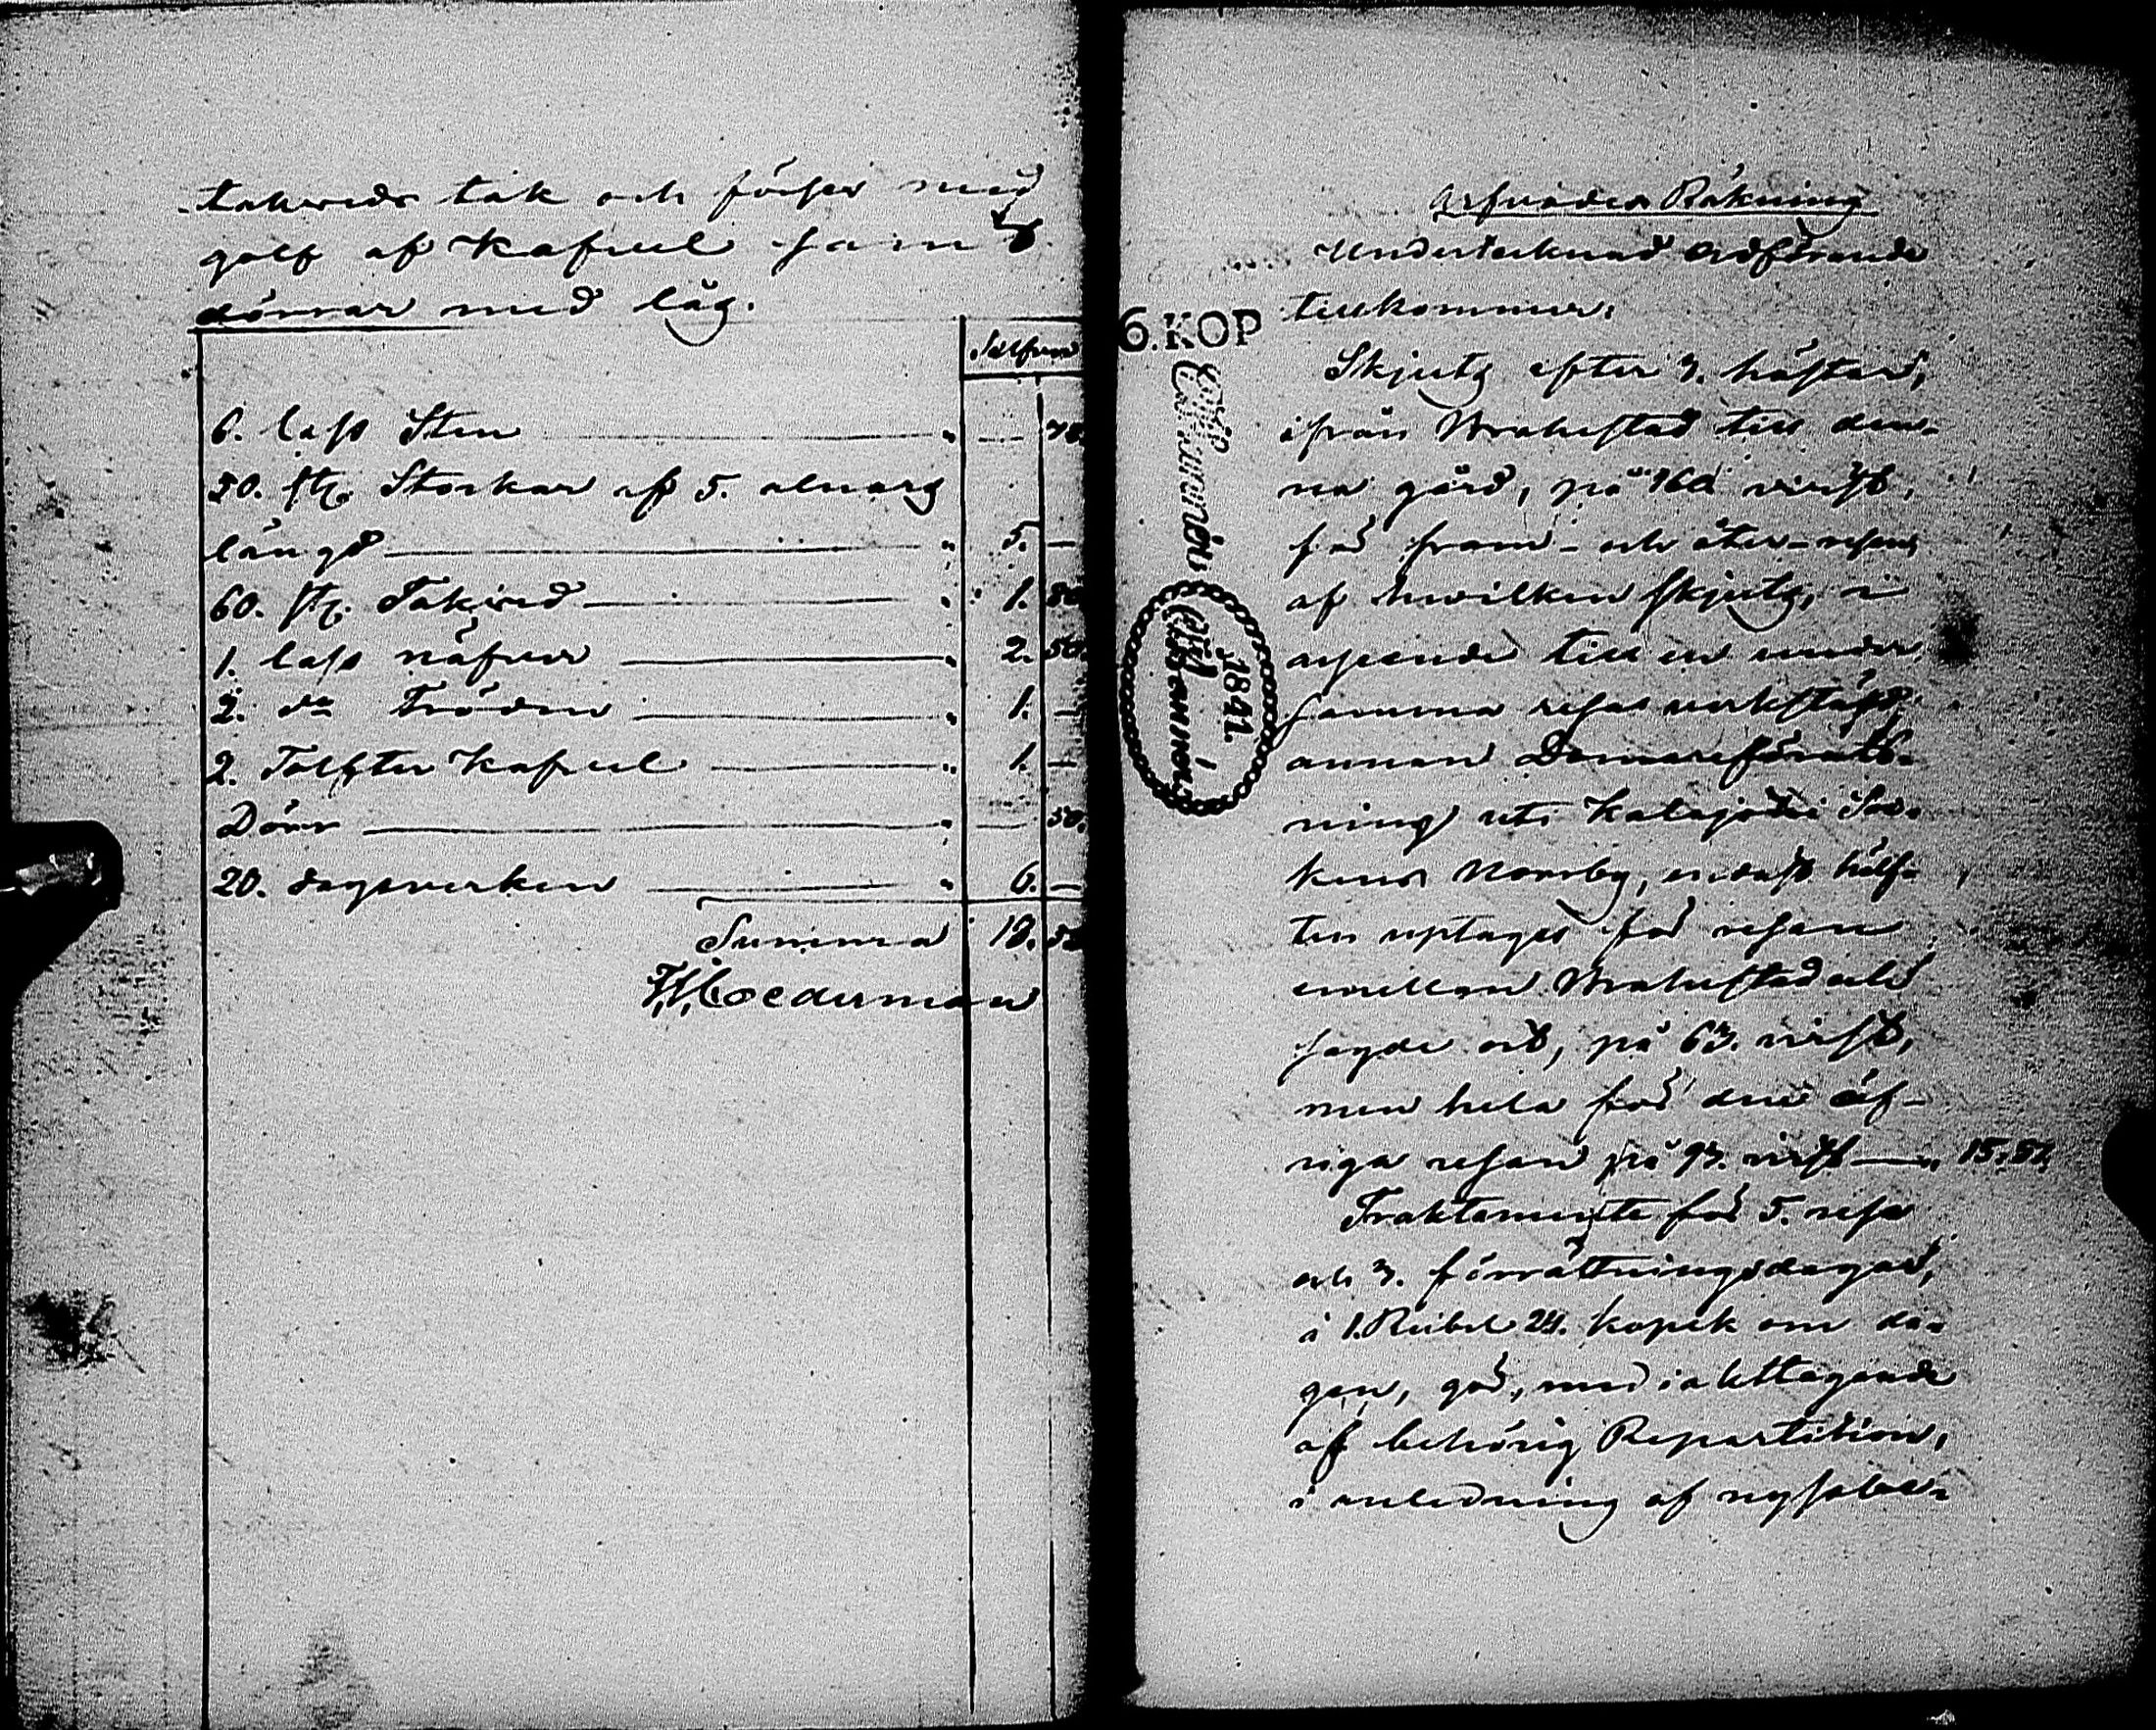 takveds tak och förses med
golf af Kafvel samt
dörrar med låg.
Silfver
6. lass Sten " — 70.
50. st. Stockar af 5. alnars
längd " 5. —
60. st. Takved " 1. 80
1. lass näfver " 2. 50.
2. do Tröden " 1. —
2. Tolfter Kafvel " 1. —
Dörr " — 50.
20. dagsverken " 6. —
Summa 18. 50
Cederman
6. KOP
1841.
Arfvodes Räkning
Undertecknad Ordförande
tillkommer:
Skjuts efter 3. hästar,
ifrån Brahestad till den-
na gård, på 160 verst,
för fram- och åter-resan
af hvilken skjuts, i
afseende till en under
samma resa verkstäld
annan Domareförrätt-
ning uti Kalajoki Soc-
kens Norrby, endast hälf-
ten uptages för resan
emellan Brahestad och
sagde ort, på 63. verst,
men hela för den öf-
riga resan på 97. verst — " 15. 57.
Traktamente för 5. rese
och 3. förrättningsdagar,
à 1. Rubel 24. kopek om da-
gen, gör, med iakttagande
af behörig Repartition,
i anledning af nyssber-